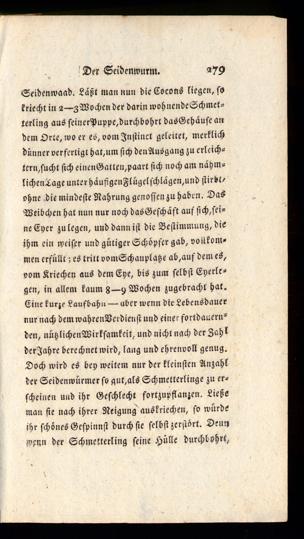 Der Seidenwurm. 279
Seidenwaad. Läßt man nun die Cocons liegen, so
kriecht in 2—3 Wochen der darin wohnende Schmet-
terling aus seiner Puppe, durchbohrt das Gehäuse an
dem Orte, wo er es, vom Instinct geleitet, merklich
dünner verfertigt hat, um sich den Ausgang zu erleich-
tern, sucht sich einen Gatten, paart sich noch am nähm-
lichen Tage unter häufigen Flügelschlägen, und stirbt,
ohne die mindeste Nahrung genossen zu haben. Das
Weibchen hat nun nur noch das Geschäft auf sich, sei-
ne Eyer zu legen, und dann ist die Bestimmung, die
ihm ein weiser und gütiger Schöpfer gab, vollkom-
men erfüllt: es tritt vom Schauplatze ab, auf dem es,
vom Kriechen aus dem Eye, bis zum selbst Eyerle-
gen, in allem kaum 8—9 Wochen zugebracht hat.
Eine kurze Laufbahn — aber wenn die Lebensdauer
nur nach dem wahren Verdienst und einer fortdauern-
den, nützlichen Wirksamkeit, und nicht nach der Zahl
der Jahre berechnet wird, lang und ehrenvoll genug.
Doch wird es bey weitem nur der kleinsten Anzahl
der Seidenwürmer so gut, als Schmetterlinge zu er-
scheinen und ihr Geschlecht fortzupflanzen. Ließe
man sie nach ihrer Neigung auskriechen, so würde
ihr schönes Gespinnst durch sie selbst zerstört. Denn
wenn der Schmetterling seine Hülle durchbohrt,